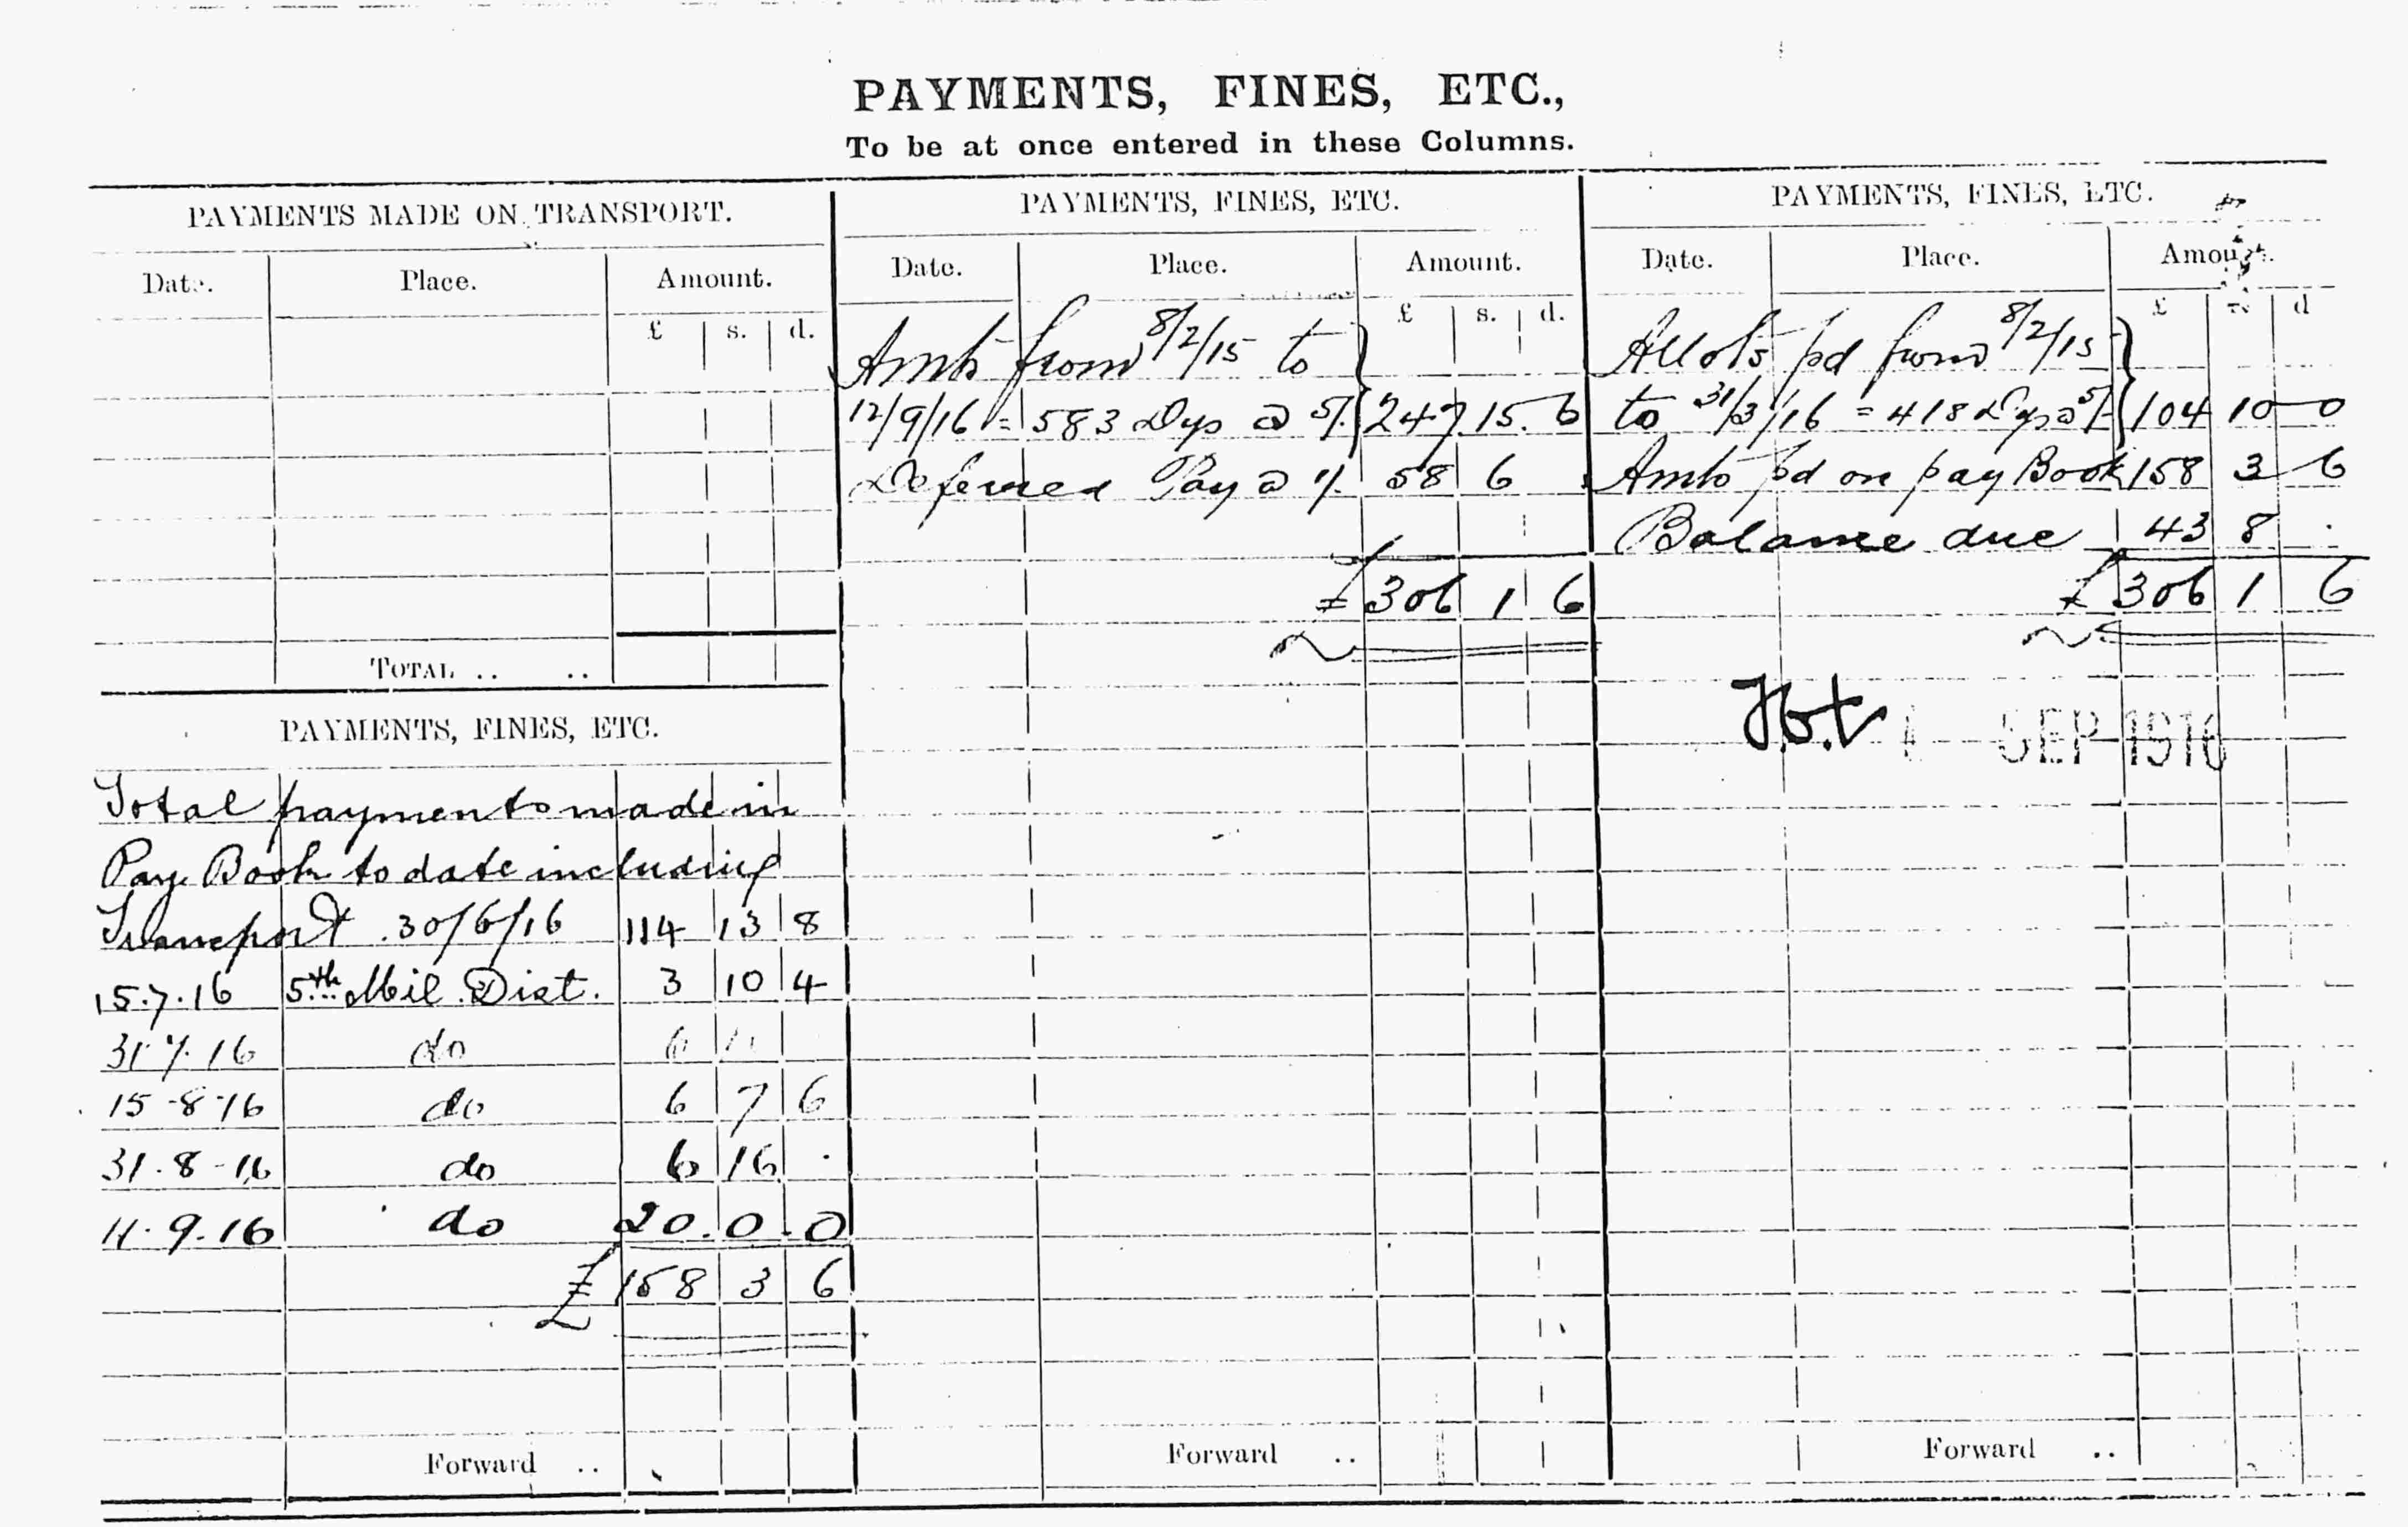 PAYMENTS, FINES, ETC.,
To be at once entered in these Columns.
PAYMENTS MADE ON TRANSPORT.
Date. Place. Amount.
£ s. d.
TOTAL .. ..
PAYMENTS, FINES, ETC.
Total payments made in
Pay Book to date including
Transport 30/6/16 114 13 8
15.7.16 5th Mil Dist. 3 10 4
31.7.16 do 6
15-8-16 do 6 7 6
31.8-16 do 6 16 .
11.9.16 do 20.0.0
£ 158 3 6
Forward ..
PAYMENTS, FINES, ETC.
Date. Place. Amount.
£ s. d.
Amt from 8/2/15 to
12/9/16 = 583 Dys @ 5/. 247.15.6
Deferred Pay @ 1/. 58 6
£ 306 1 6
Forward ..
PAYMENTS, FINES, ETC.
Date. Place. Amount.
£ d
Allots pd from 8/2/15
to 31/3/16 = 418 Dys @ 5/- 104 10 0
Amts pd on pay Book 158 3 6
Balance due 43 8 .
£ 306 1 6
SEP 1916
Forward ..